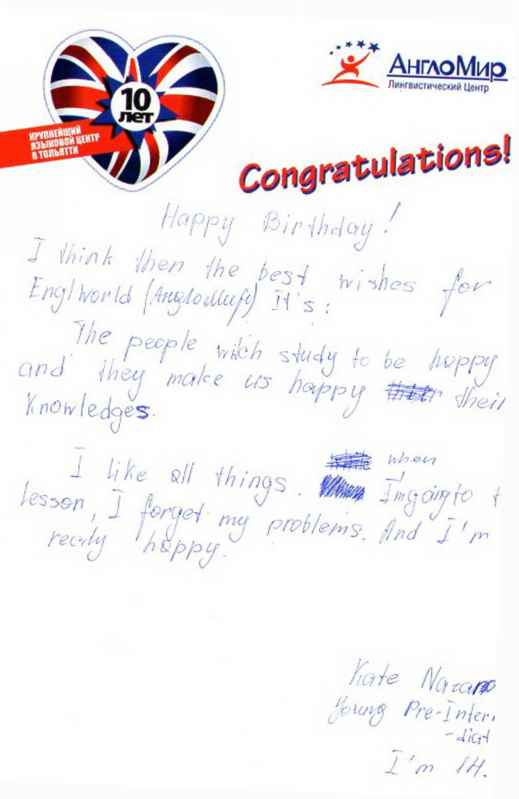 10
ЛЕТ
КРУПНЕЙШИЙ
ЯЗЫКОВОЙ ЦЕНТР
В ТОЛЬЯТТИ
АнглоМир
Лингвистический Центр
Congratulations!
Happy Birthday!
I think then the best wishes for
Englworld (АнглоМир) It's:
The people witch study to be happy
and they make us happy their
knowledges.
I like all things. when
I'm going to t
lesson, I forget my problems. And I'm
really happy.
Kate
Young Pre-Inter
-diat
I'm 14.